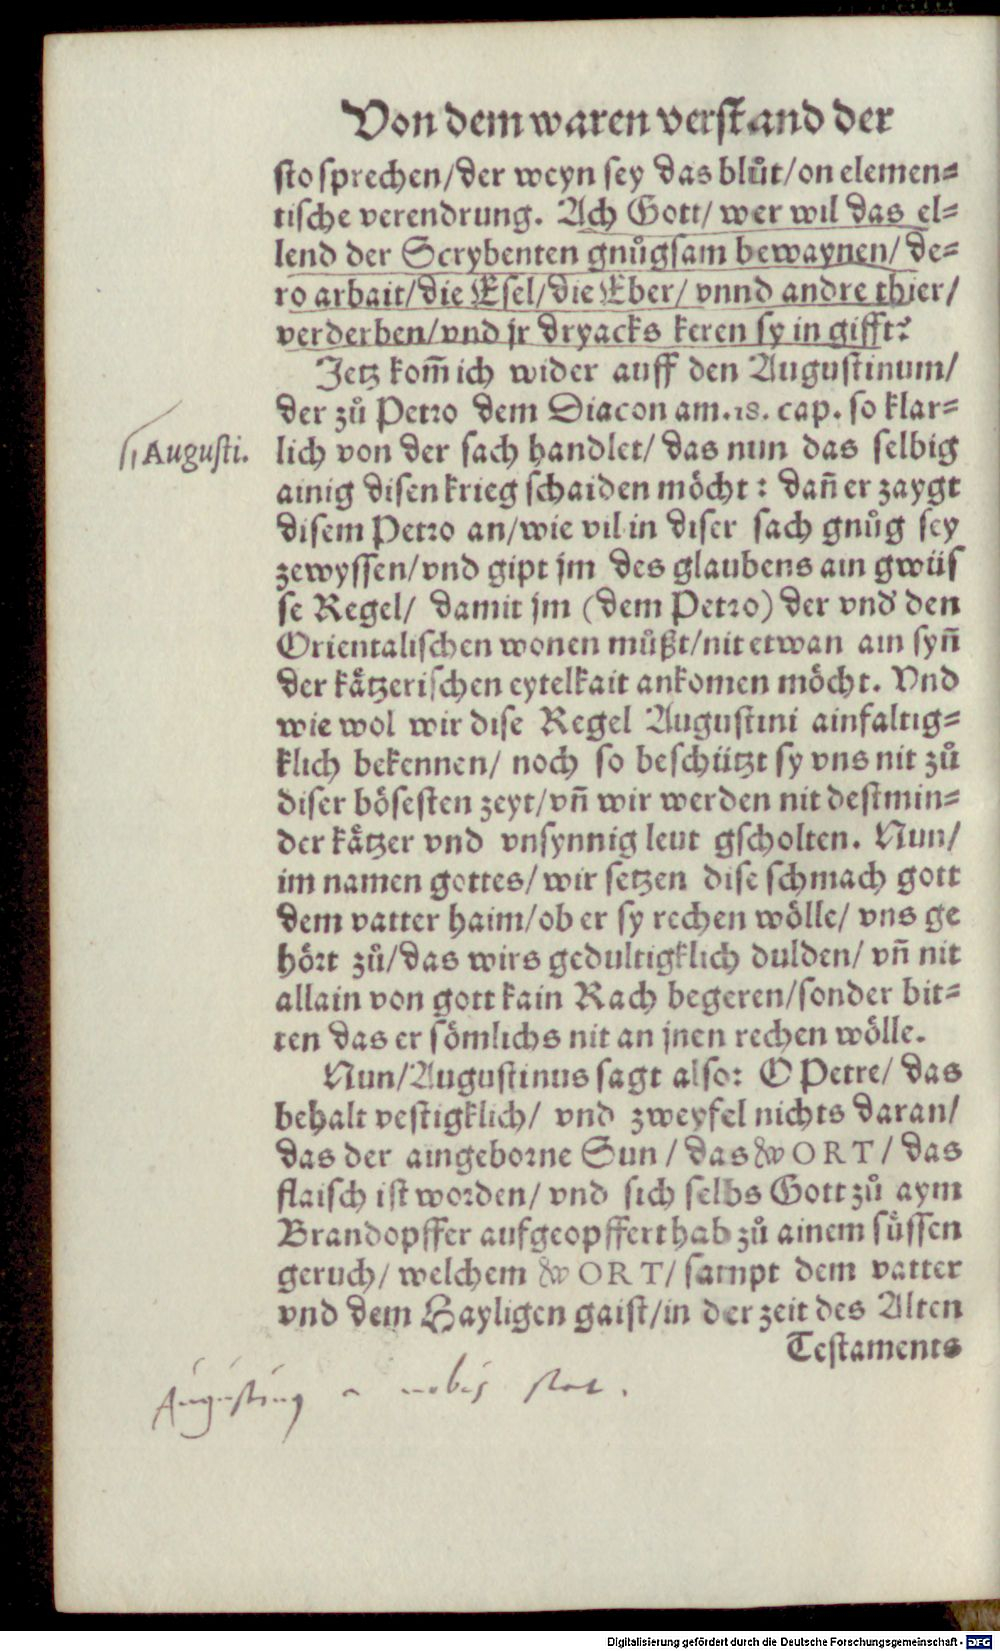 Von dem waren verstand der
sto sprechen/der weyn sey das blůt/on elemen⸗
tische verendrung. Ach Gott/ wer wil das el⸗
lend der Scrybenten gnůgsam bewaynen/ de⸗
ro arbait/die Esel/die Eber/ vnnd andre thier/
verderben/vnd jr dryacks keren sy in gifft?
Jetz kom̃ ich wider auff den Augustinum/
der zů Petro dem Diacon am.18. cap. so klar⸗
Augusti.
lich von der sach handlet/ das nun das selbig
ainig disen krieg schaiden möcht: dañ er zaygt
disem Petro an/wie vil in diser sach gnůg sey
zewyssen/vnd gipt jm des glaubens ain gwüs
se Regel/ damit jm (dem Petro) der vnd̕ den
Orientalischen wonen můßt/nit etwan ain syñ
der kätzerischen eytelkait ankomen möcht. Vnd
wie wol wir dise Regel Augustini ainfaltig⸗
klich bekennen/ noch so beschützt sy vns nit zů
diser bösesten zeyt/vñ wir werden nit destmin⸗
der kätzer vnd vnsynnig leut gscholten. Nun/
im namen gottes/ wir setzen dise schmach gott
dem vatter haim/ob er sy rechen wölle/ vns ge
hört zů/das wirs gedultigklich dulden/ vñ nit
allain von gott kain Rach begeren/sonder bit⸗
ten das er sömlichs nit an jnen rechen wölle.
Nun/Augustinus sagt also: O Petre/ das
behalt vestigklich/ vnd zweyfel nichts daran/
das der aingeborne Sun/ das WORT/ das
flaisch ist worden/ vnd sich selbs Gott zů aym
Brandopffer aufgeopffert hab zů ainem süssen
geruch/ welchem WORT/ sampt dem vatter
vnd dem Hayligen gaist/in der zeit des Alten
Testaments
Augustinus a nobis stat.
Digitalisierung gefördert durch die Deutsche Forschungsgemeinschaft - DFG